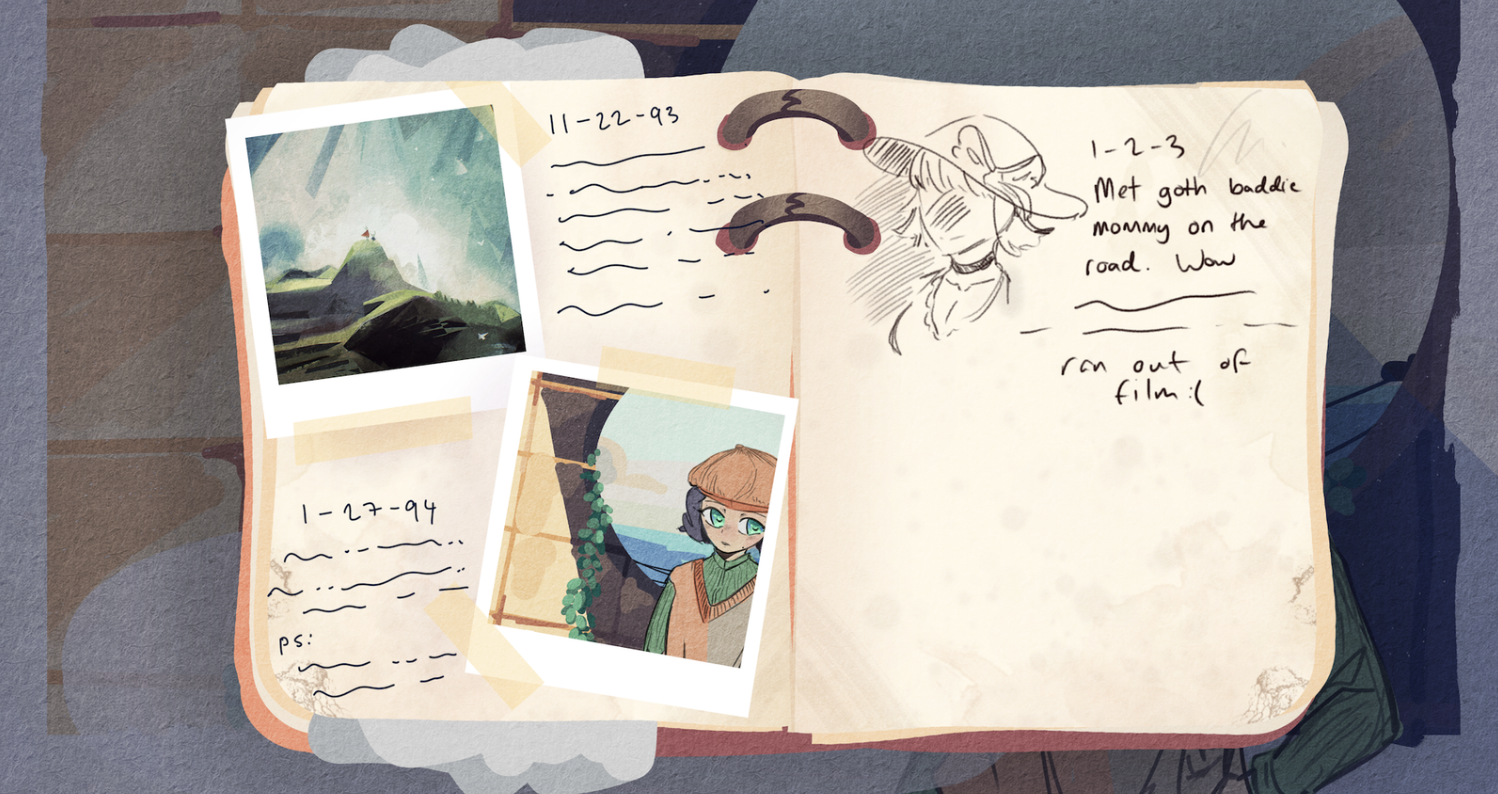 11-22-93
1-27-94
ps:
1-2-3
Met goth baddie
mommy on the
road. Wow
ran out of
film :(